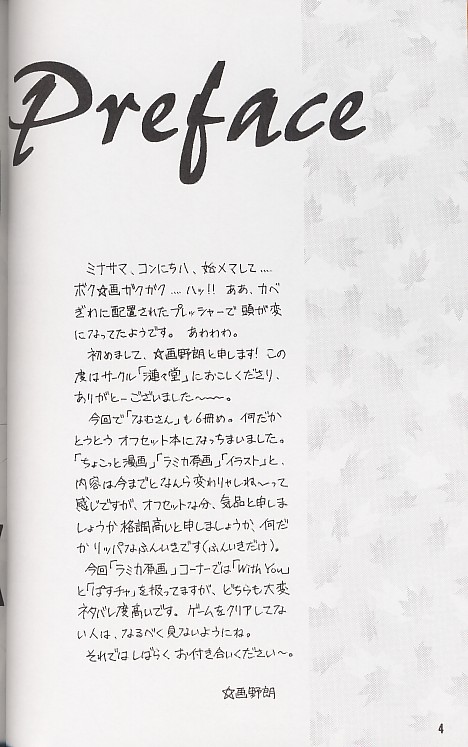 Preface
ミナサマ、コンにち八、始メマして‥‥
ボク☆画ガクガク‥‥ハッ!! ああ、カベ
ぎわに配置されたプレッシャーで頭が変
になってたようです。 あわわわ。
初めまして、☆画野朗と申します! この
度はサークル「漣々堂」におこしくださり、
ありがとーございました〜〜〜。
今回で「なむさん」も6冊め。何だか
とうとう オフセット本になっちまいました。
「ちょこっと漫画」「ラミカ原画」「イラスト」と、
内容は今までとなんら変わりゃしね〜って
感じですが、オフセットな分、気品と申しま
しょうか格調高いと申しましょうか、何だ
かリッパなふんいきです(ふんいきだけ)。
今回「ラミカ原画」コーナーでは「With You」
と「ぱすチャ」を扱ってますが、どちらも大変
ネタバレ度高いです。ゲームをクリアしてな
い人は、なるべく見ないようにね。
それではしばらく お付き合いください〜。
☆画野朗
4